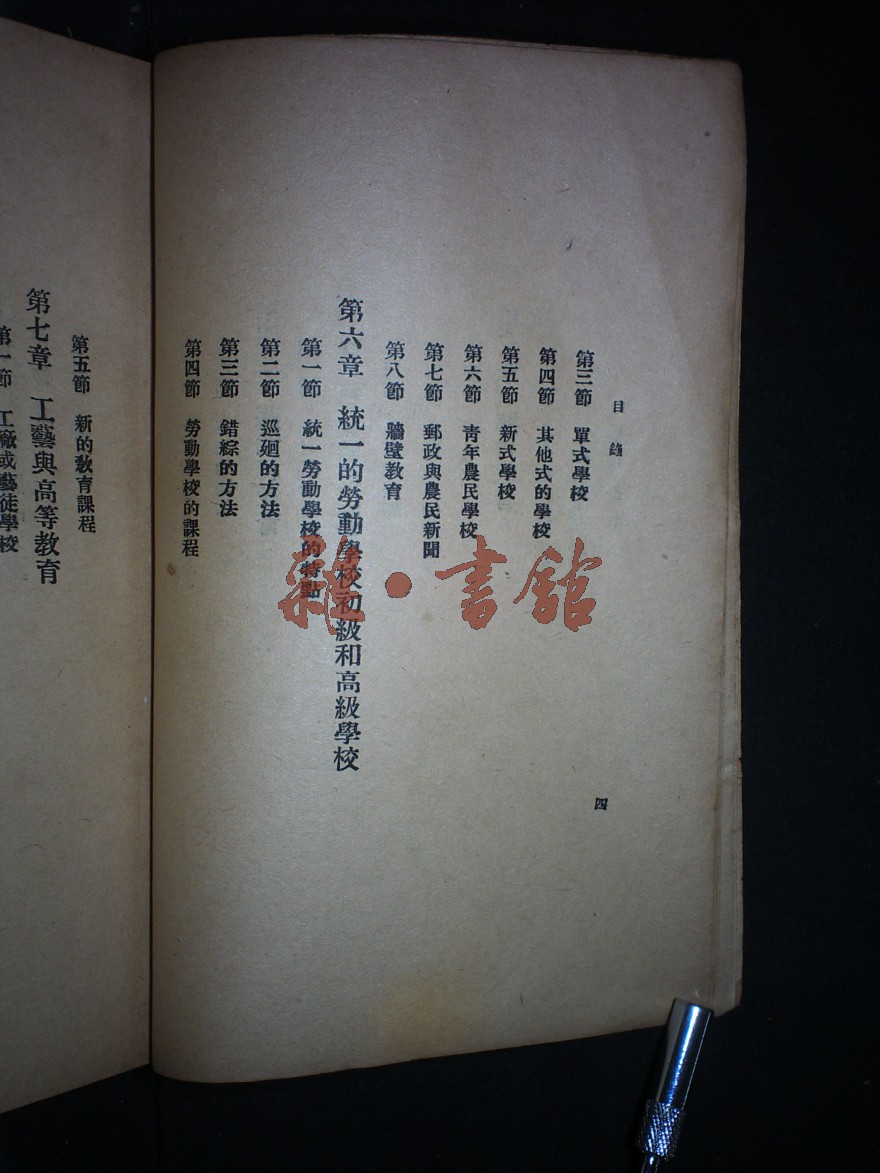 目錄
四
第三節 單式學校
第四節 其他式的學校
第五節 新式學校
第六節 靑年農民學校
第七節 郵政與農民新聞
第八節 牆壁教育
第六章 統一的勞動學校初級和高級學校
第一節 統一勞動學校的特點
第二節 巡廻的方法
第三節 錯綜的方法
第四節 勞動學校的課程
第五節 新的教育課程
第七章 工藝與高等教育
第一節 工廠或藝徒學校
雜·書館